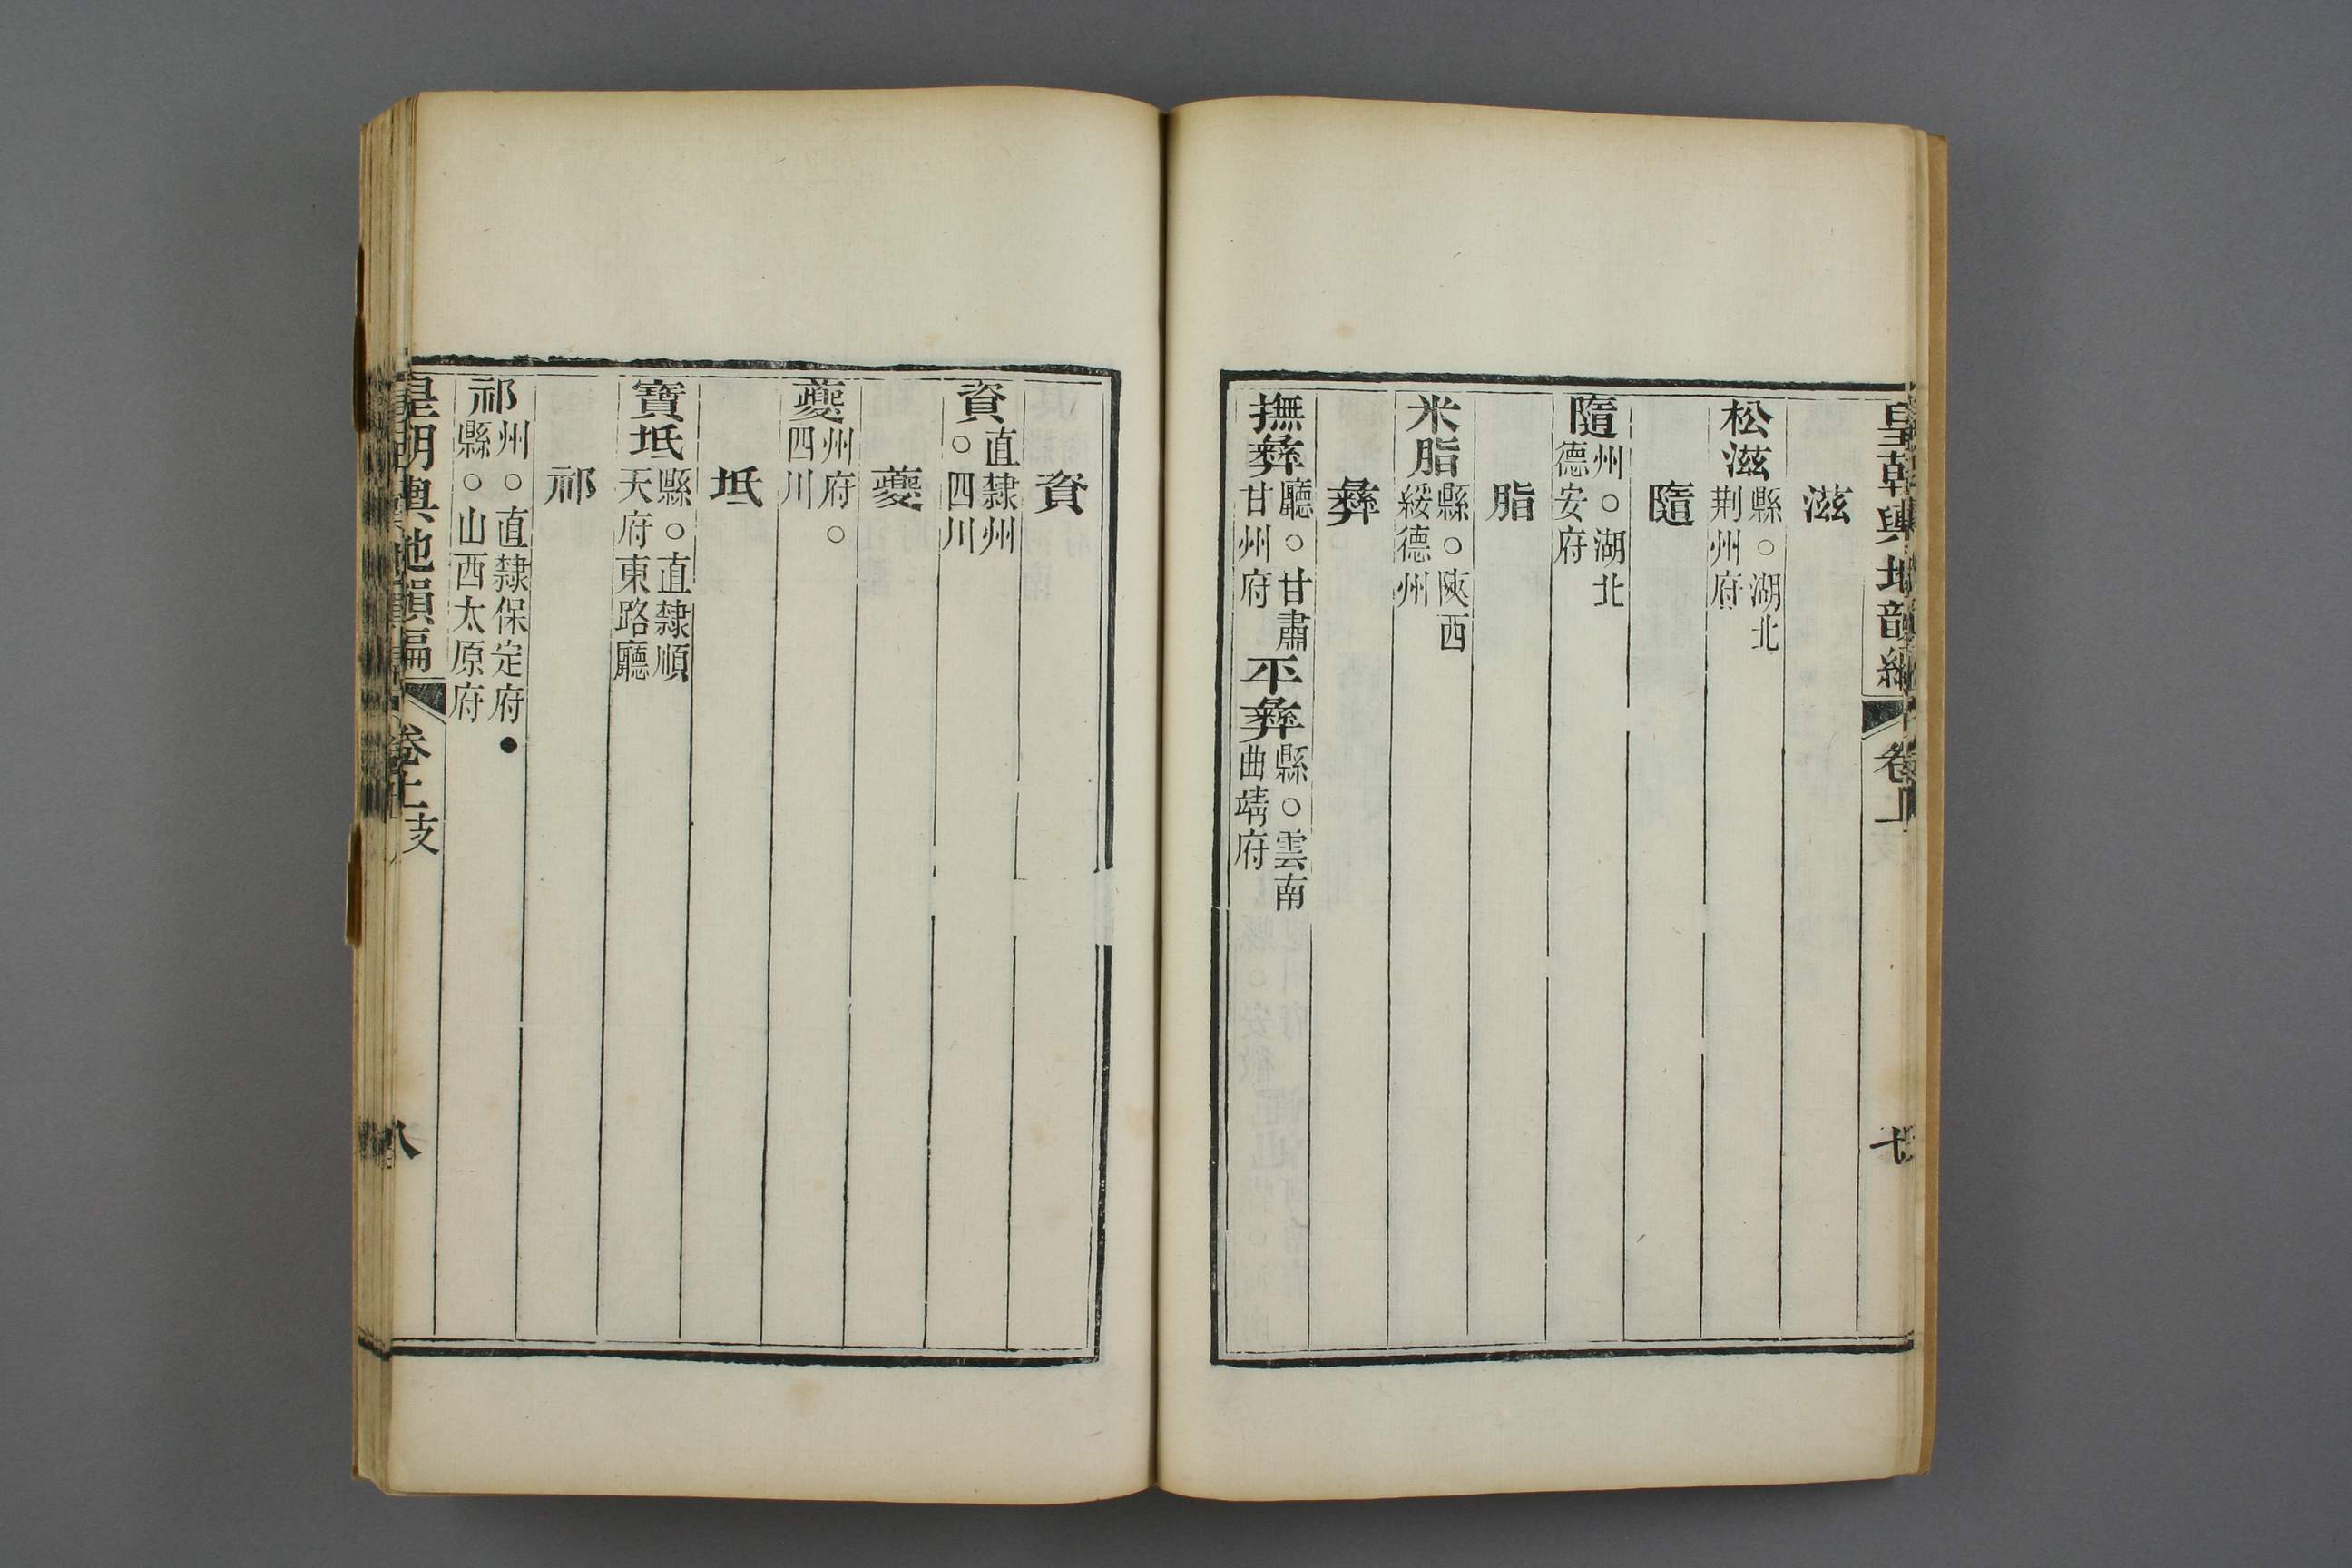 皇朝輿地韻編 卷上 七
滋
松滋 縣○湖北荆州府
隨
隨 州○湖北德安府
脂
米脂 縣○陝西綏德州
彝
撫彝 廳○甘肅甘州府 平彝 縣○雲南曲靖府
資
資 直隸州○四川
夔
夔 州府○四川
坻
寶坻 縣○直隸順天府東路廳
祁
祁 州○直隸保定府●縣○山西太原府
皇朝輿地韻編 卷上 支 八